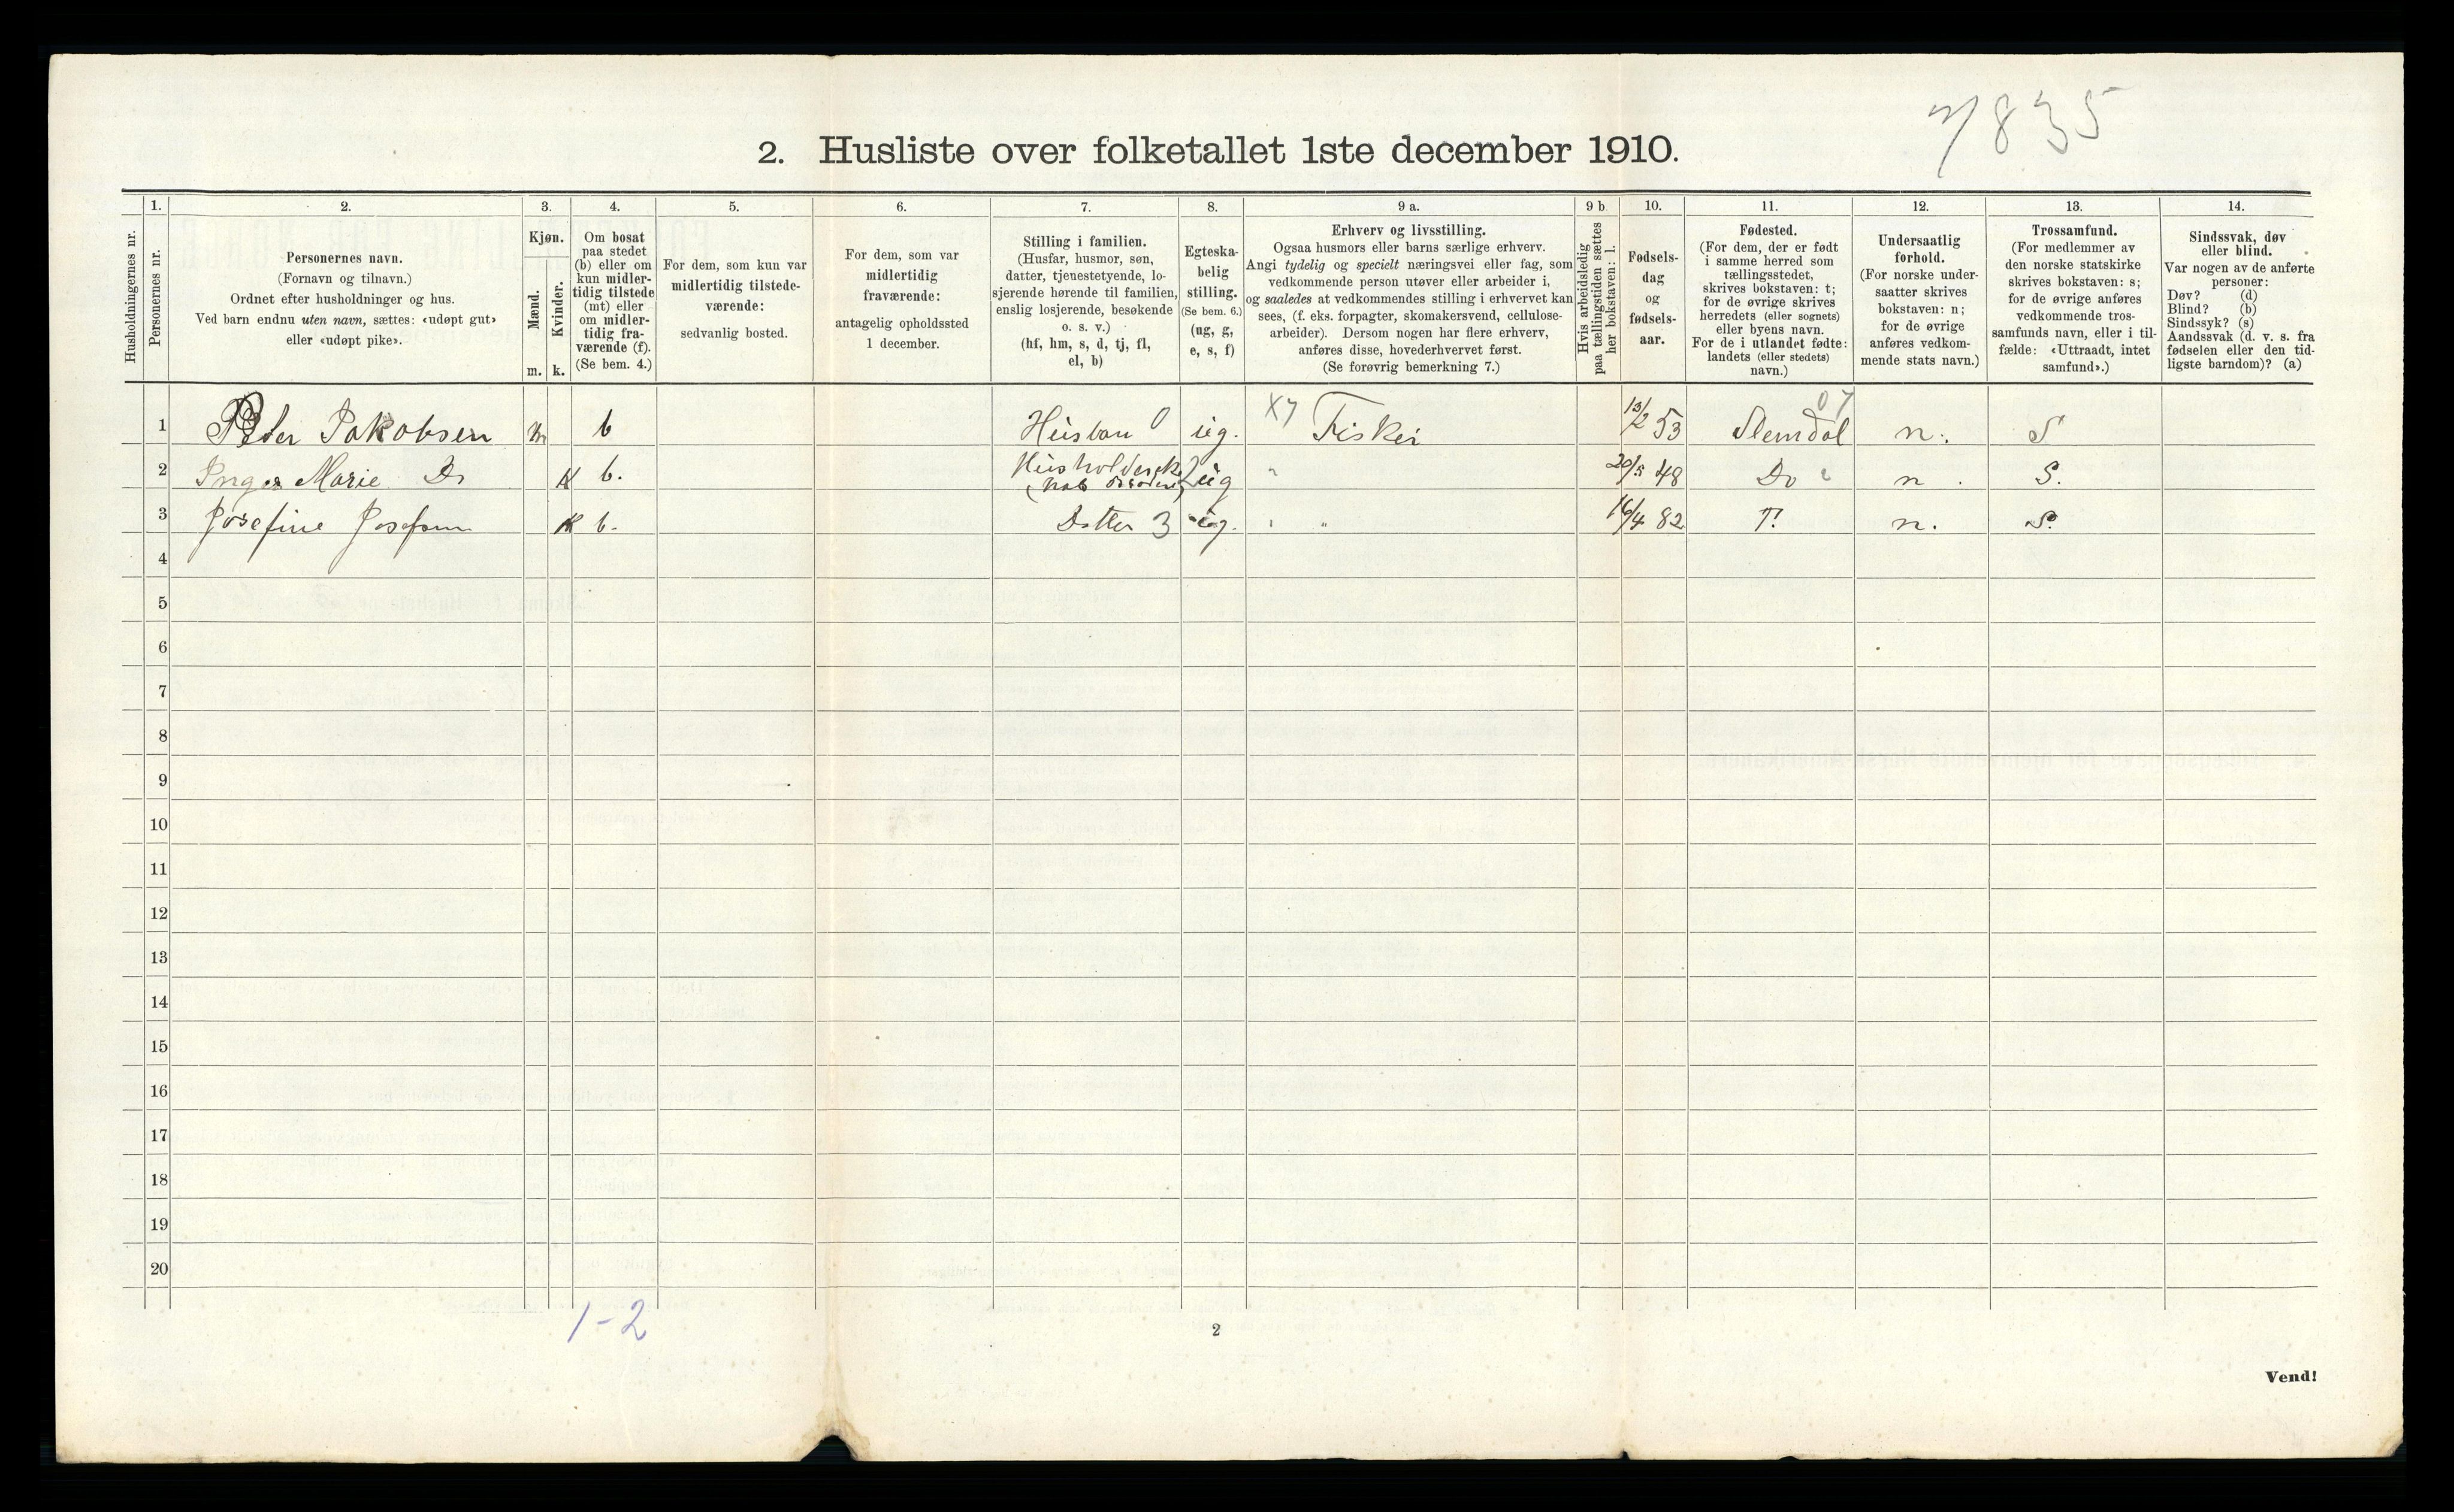 7/835
2. Husliste over folketallet 1ste december 1910.
Husholdningernes nr.
1.
Personernes nr.
2.
Personernes navn.
(Fornavn og tilnavn.)
Ordnet efter husholdninger og hus.
Ved barn endnu uten navn, sættes: «udøpt gut»
eller «udøpt pike».
3.
Kjøn.
Mænd.
Kvinder.
m. k.
4.
Om bosat
paa stedet
(b) eller om
kun midler-
tidig tilstede
(mt) eller
om midler-
tidig fra-
værende (f).
(Se bem. 4.)
5.
For dem, som kun var
midlertidig tilstede-
værende:
sedvanlig bosted.
6.
For dem, som var
midlertidig
fraværende:
antagelig opholdssted
1 december.
7.
Stilling i familien.
(Husfar, husmor, søn,
datter, tjenestetyende, lo-
sjerende hørende til familien,
enslig losjerende, besøkende
o. s. v.)
(hf, hm, s, d, tj, fl,
el, b)
8.
Egteska-
belig
stilling.
(Se bem. 6.)
(ug, g,
e, s, f)
9 a.
Erhverv og livsstilling.
Ogsaa husmors eller barns særlige erhverv.
Angi tydelig og specielt næringsvei eller fag, som
vedkommende person utøver eller arbeider i,
og saaledes at vedkommendes stilling i erhvervet kan
sees, (f. eks. forpagter, skomakersvend, cellulose-
arbeider). Dersom nogen har flere erhverv,
anføres disse, hovederhvervet først.
(Se forøvrig bemerkning 7.)
9 b
Hvis arbeidsledig
paa tællingstiden sættes
her bokstaven: l.
10.
Fødsels-
dag
og
fødsels-
aar.
11.
Fødested.
(For dem, der er født
i samme herred som
tællingsstedet,
skrives bokstaven: t;
for de øvrige skrives
herredets (eller sognets)
eller byens navn.
For de i utlandet fødte:
landets (eller stedets)
navn.)
12.
Undersaatlig
forhold.
(For norske under-
saatter skrives
bokstaven: n;
for de øvrige
anføres vedkom-
mende stats navn.)
13.
Trossamfund.
(For medlemmer av
den norske statskirke
skrives bokstaven: s;
for de øvrige anføres
vedkommende tros-
samfunds navn, eller i til-
fælde: «Uttraadt, intet
samfund».)
14.
Sindssvak, døv
eller blind.
Var nogen av de anførte
personer:
Døv? (d)
Blind? (b)
Sindssyk? (s)
Aandssvak (d. v. s. fra
fødselen eller den tid-
ligste barndom)? (a)
1 Peder Jakobsen m b 0 ug. X7 Fisker 13/2 53 07 n. S
2 Inger Marie Do K b. 2 ug " 20/5 48 Do n. S.
3 Josefine Josefsen K b. Datter 3 ug. " " 16/4 82 T. n. S.
4
5
6
7
8
9
10
11
12
13
14
15
16
17
18
19
20
1-2
2
Vend!